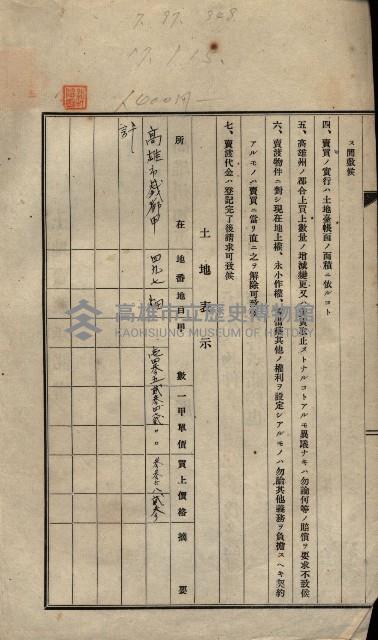 7. 37. 348
17. 1. 15.
1600円—
ス間敷候
四、賣買ノ實行ハ土地臺帳面ノ面積ニ依ルコト
五、高雄州ノ都合上買上數量ノ增減變更又ハ買收取止ストナルコトアルモ異議ナキハ勿論何等ノ賠償ヲ要求不致候
六、賣渡物件ニ對シ現在地上權、永小作權、抵當權其他ノ權利ヲ設定シアルモノハ勿論其他義務ヲ負擔スヘキ契約
アルモノハ賣買ニ當リ直ニ之ヲ解除可致候
七、賣渡代金ハ登記完了後請求可致候
土地表示
所在 地番 地目 甲數 一甲單價 買上價格 摘要
高雄市戲獅甲 四九七 畑
計
高雄市立歷史博物館
KAOHSIUNG MUSEUM OF HISTORY